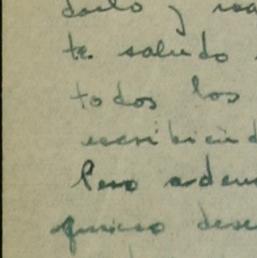 darlo y
te saludo
todos los
escribien
Pero adem
quiero dese